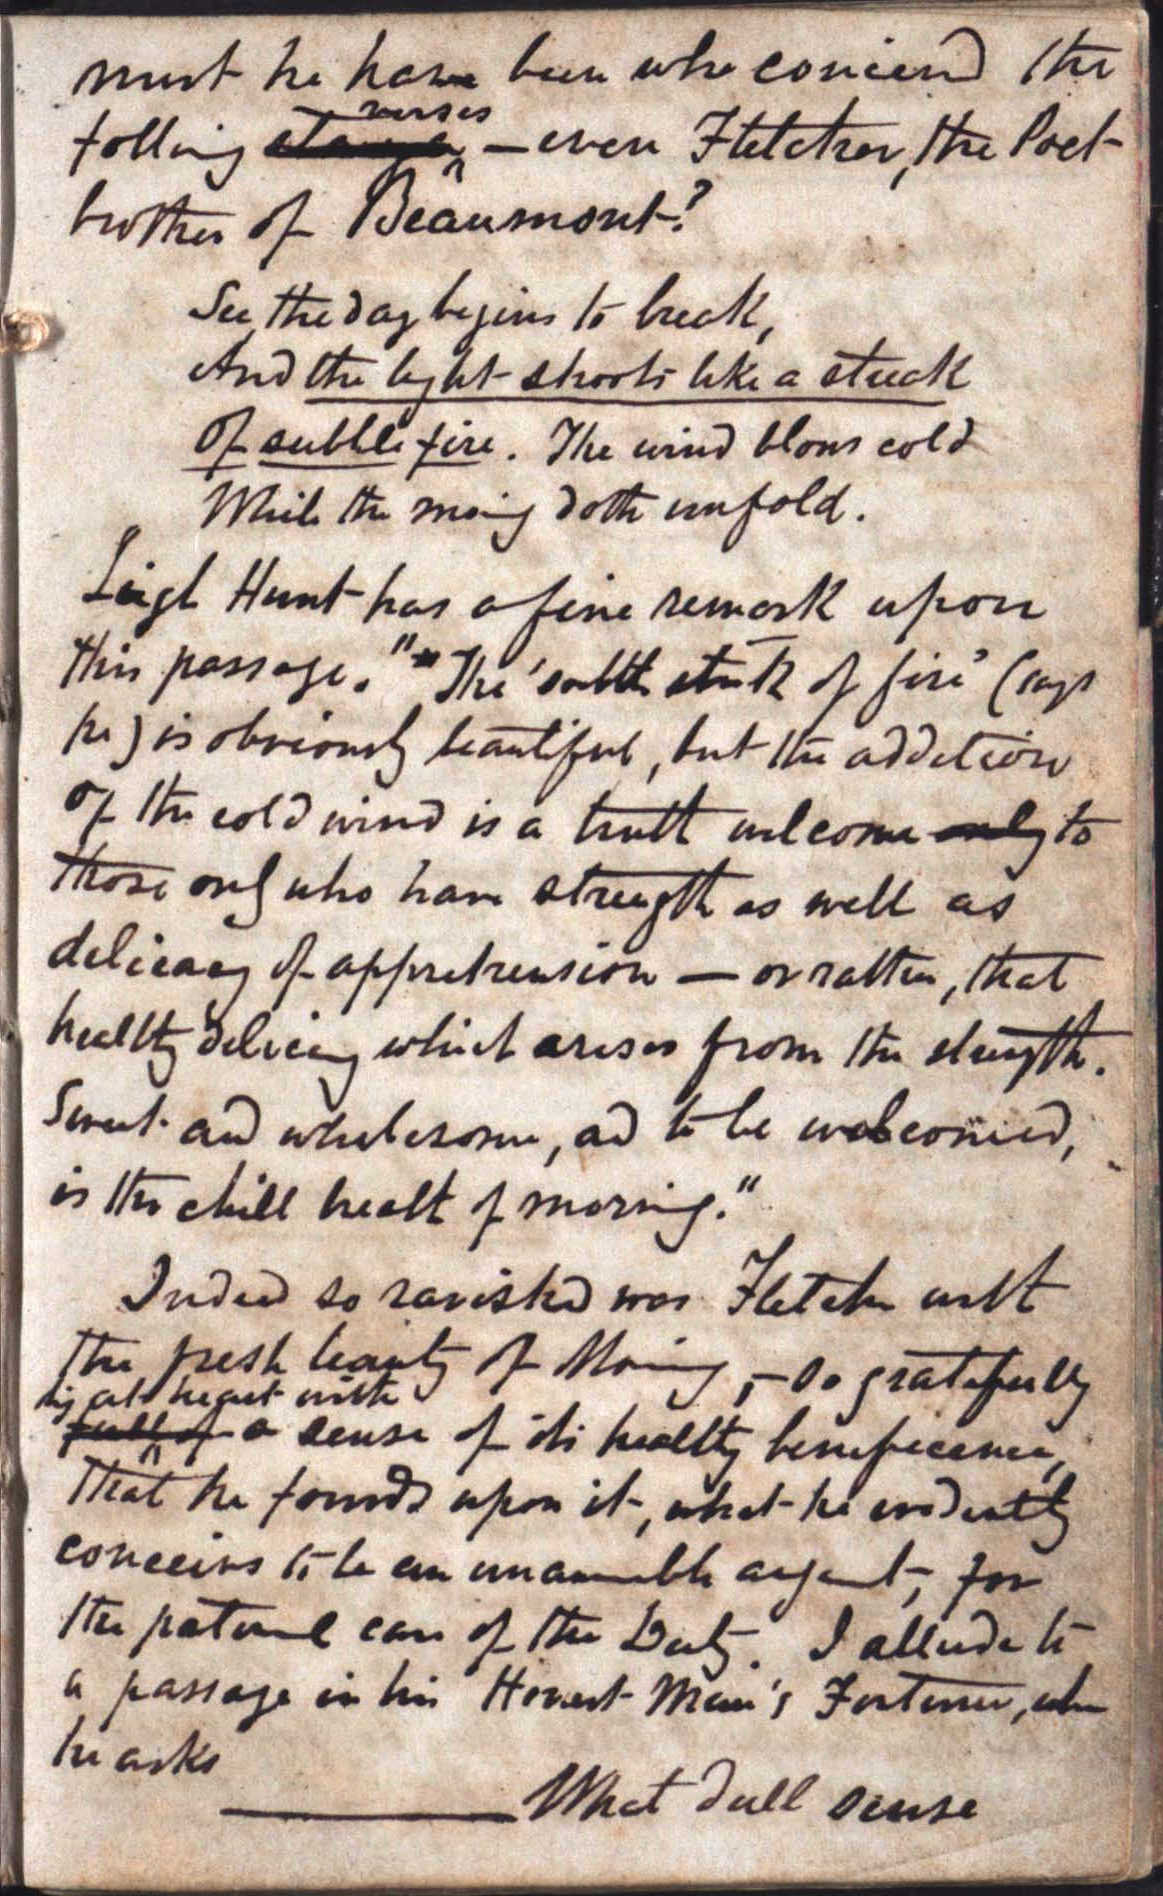 must he have been who conceived the
verses
folling stanza — even Fletcher, the Poet-
brother of Beaumont?
See, the day begins to break,
And the light shoots like a streak
Of subtle fire. The wind blows cold
While the morning doth unfold.
Leigh Hunt has a fine remark upon
this passage. "The 'subtle streak of fire' (says
he) is obviously beautiful, but the addition
of the cold wind is a truth welcome only to
those only who have strength as well as
delicacy of apprehension — or rather, that
healthy delicacy which arises from the strength.
Sweet and wholesome, and to be welcomed,
is the chill breath of morning."
Indeed so ravished was Fletcher with
the fresh beauty of Morning, — so gratefully
at heart with
full of a sense of its healthy beneficence,
that he founds upon it, what he evidently
conceives to be an unanswerable argument, for
the paternal care of the Deity. I allude to
a passage in his Honest Man's Fortune, when
he asks
What dull sense